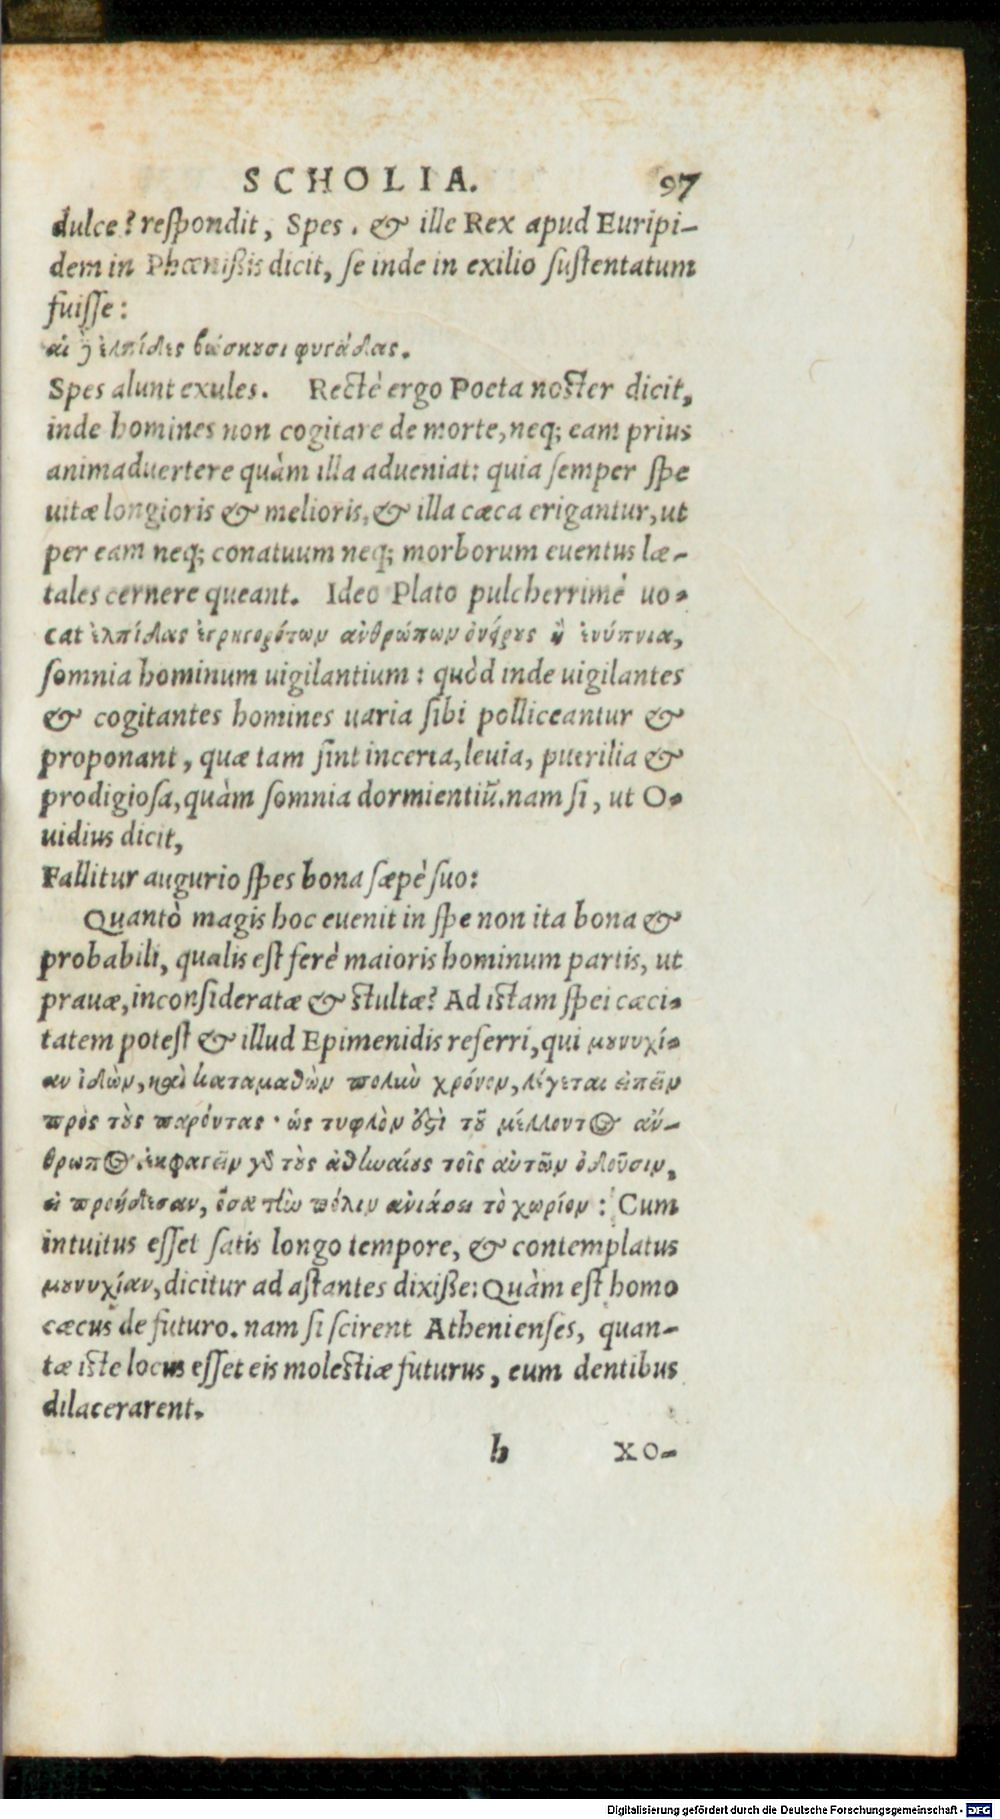 SCHOLIA. 97
dulce? respondit, Spes. & ille Rex apud Euripi-
dem in Phœnißis dicit, se inde in exilio sustentatum
fuisse:
αἱ δ' ἐλπίδες βόσκουσι φυγάδας.
Spes alunt exules. Rectè ergo Poeta noster dicit,
inde homines non cogitare de morte, neq; eam prius
animaduertere quàm illa adueniat: quia semper spe
uitæ longioris & melioris, & illa cæca erigantur, ut
per eam neq; conatuum neq; morborum euentus læ-
tales cernere queant. Ideo Plato pulcherrimè uo-
cat ἐλπίδας ἐγρηγορότων ἀνθρώπων ὀνείρους ἢ ἐνύπνια,
somnia hominum uigilantium: quòd inde uigilantes
& cogitantes homines uaria sibi polliceantur &
proponant, quæ tam sint incerta, leuia, puerilia &
prodigiosa, quàm somnia dormientiũ. nam si, ut O-
uidius dicit,
Fallitur augurio spes bona sæpè suo:
Quantò magis hoc euenit in spe non ita bona &
probabili, qualis est ferè maioris hominum partis, ut
prauæ, inconsideratæ & stultæ? Ad istam spei cæci-
tatem potest & illud Epimenidis referri, qui μουνυχί-
αν ἰδὼν, καὶ καταμαθὼν πολὺν χρόνον, λέγεται εἰπεῖν
πρὸς τοὺς παρόντας· ὡς τυφλὸν ὅστι τοῦ μέλλοντος ἄν-
θρωπος ἐκφαγεῖν γὰρ τοὺς ἀθηναίους τοῖς αὐτῶν ὀδοῦσιν,
εἰ προῄδεσαν, ὅσα τὴν πόλιν ἀνιάσει τὸ χωρίον: Cum
intuitus esset satis longo tempore, & contemplatus
μουνυχίαν, dicitur ad astantes dixiße: Quàm est homo
cæcus de futuro. nam si scirent Athenienses, quan-
tæ iste locus esset eis molestiæ futurus, eum dentibus
dilacerarent.
h XO-
Digitalisierung gefördert durch die Deutsche Forschungsgemeinschaft - DFG